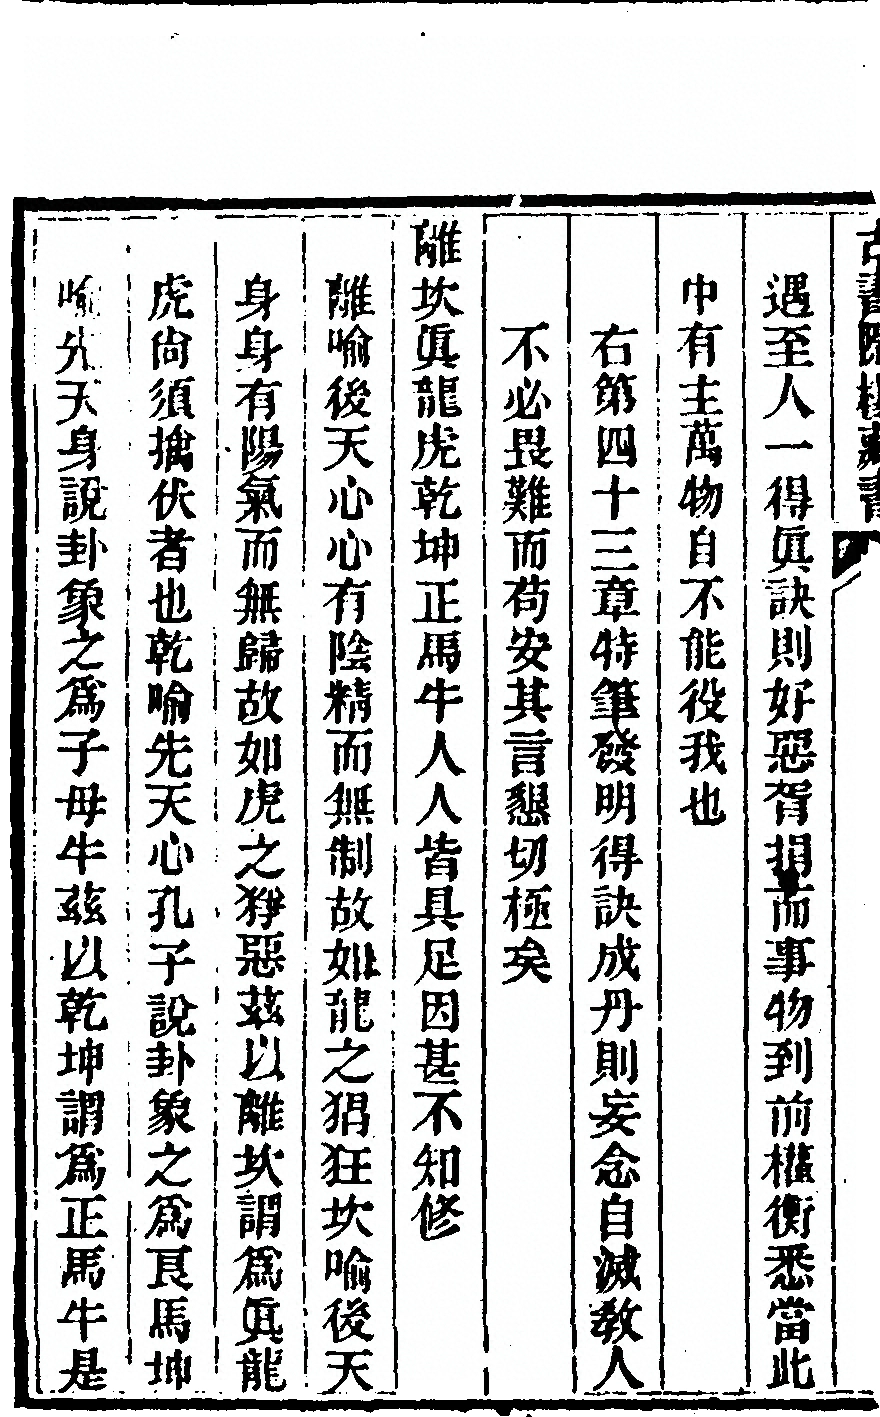 古書隱樓藏書
遇至人一得眞訣則好惡胥捐而事物到前權衡悉當此
中有主萬物自不能役我也
右第四十三章特筆發明得訣成丹則妄念自滅敎人
不必畏難而苟安其言懇切極矣
離坎眞龍虎乾坤正馬牛人人皆具足因甚不知修
離喻後天心心有陰精而無制故如龍之猖狂坎喻後天
身身有陽氣而無歸故如虎之猙惡茲以離坎謂爲眞龍
虎尙須擒伏者也乾喻先天心孔子說卦象之爲良馬坤
喻先天身說卦象之爲子母牛茲以乾坤謂爲正馬牛是